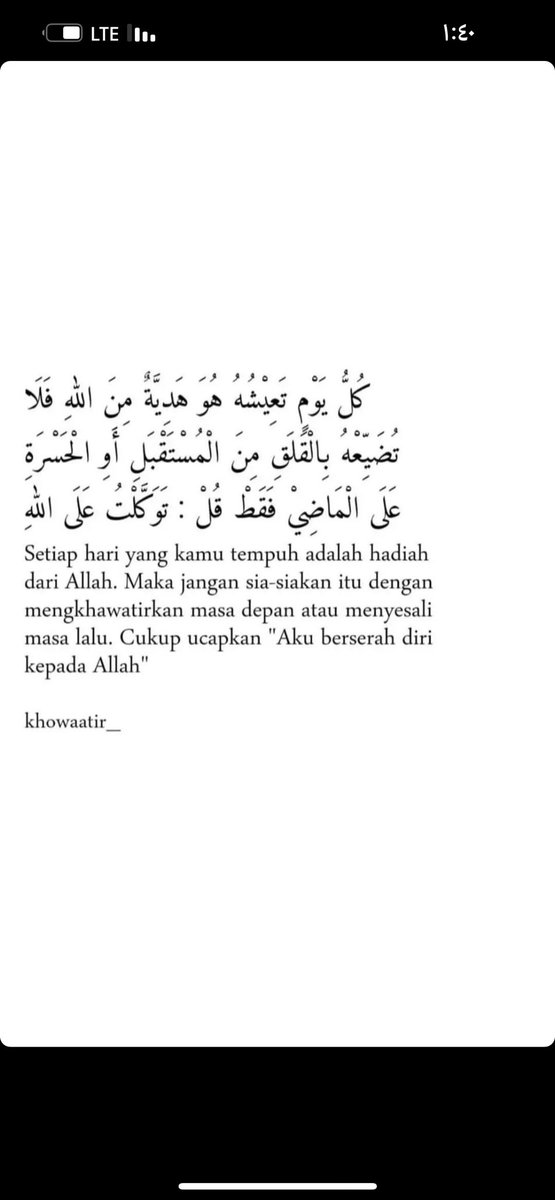 LTE
١:٤٠
كُلُّ يَوْمٍ تَعِيْشُهُ هُوَ هَدِيَّةٌ مِنَ اللهِ فَلَا
تُضَيِّعْهُ بِالْقَلَقِ مِنَ الْمُسْتَقْبَلِ أَوِ الْحَسْرَةِ
عَلَى الْمَاضِيْ فَقَطْ قُلْ : تَوَكَّلْتُ عَلَى اللهِ
Setiap hari yang kamu tempuh adalah hadiah
dari Allah. Maka jangan sia-siakan itu dengan
mengkhawatirkan masa depan atau menyesali
masa lalu. Cukup ucapkan "Aku berserah diri
kepada Allah"
khowaatir_